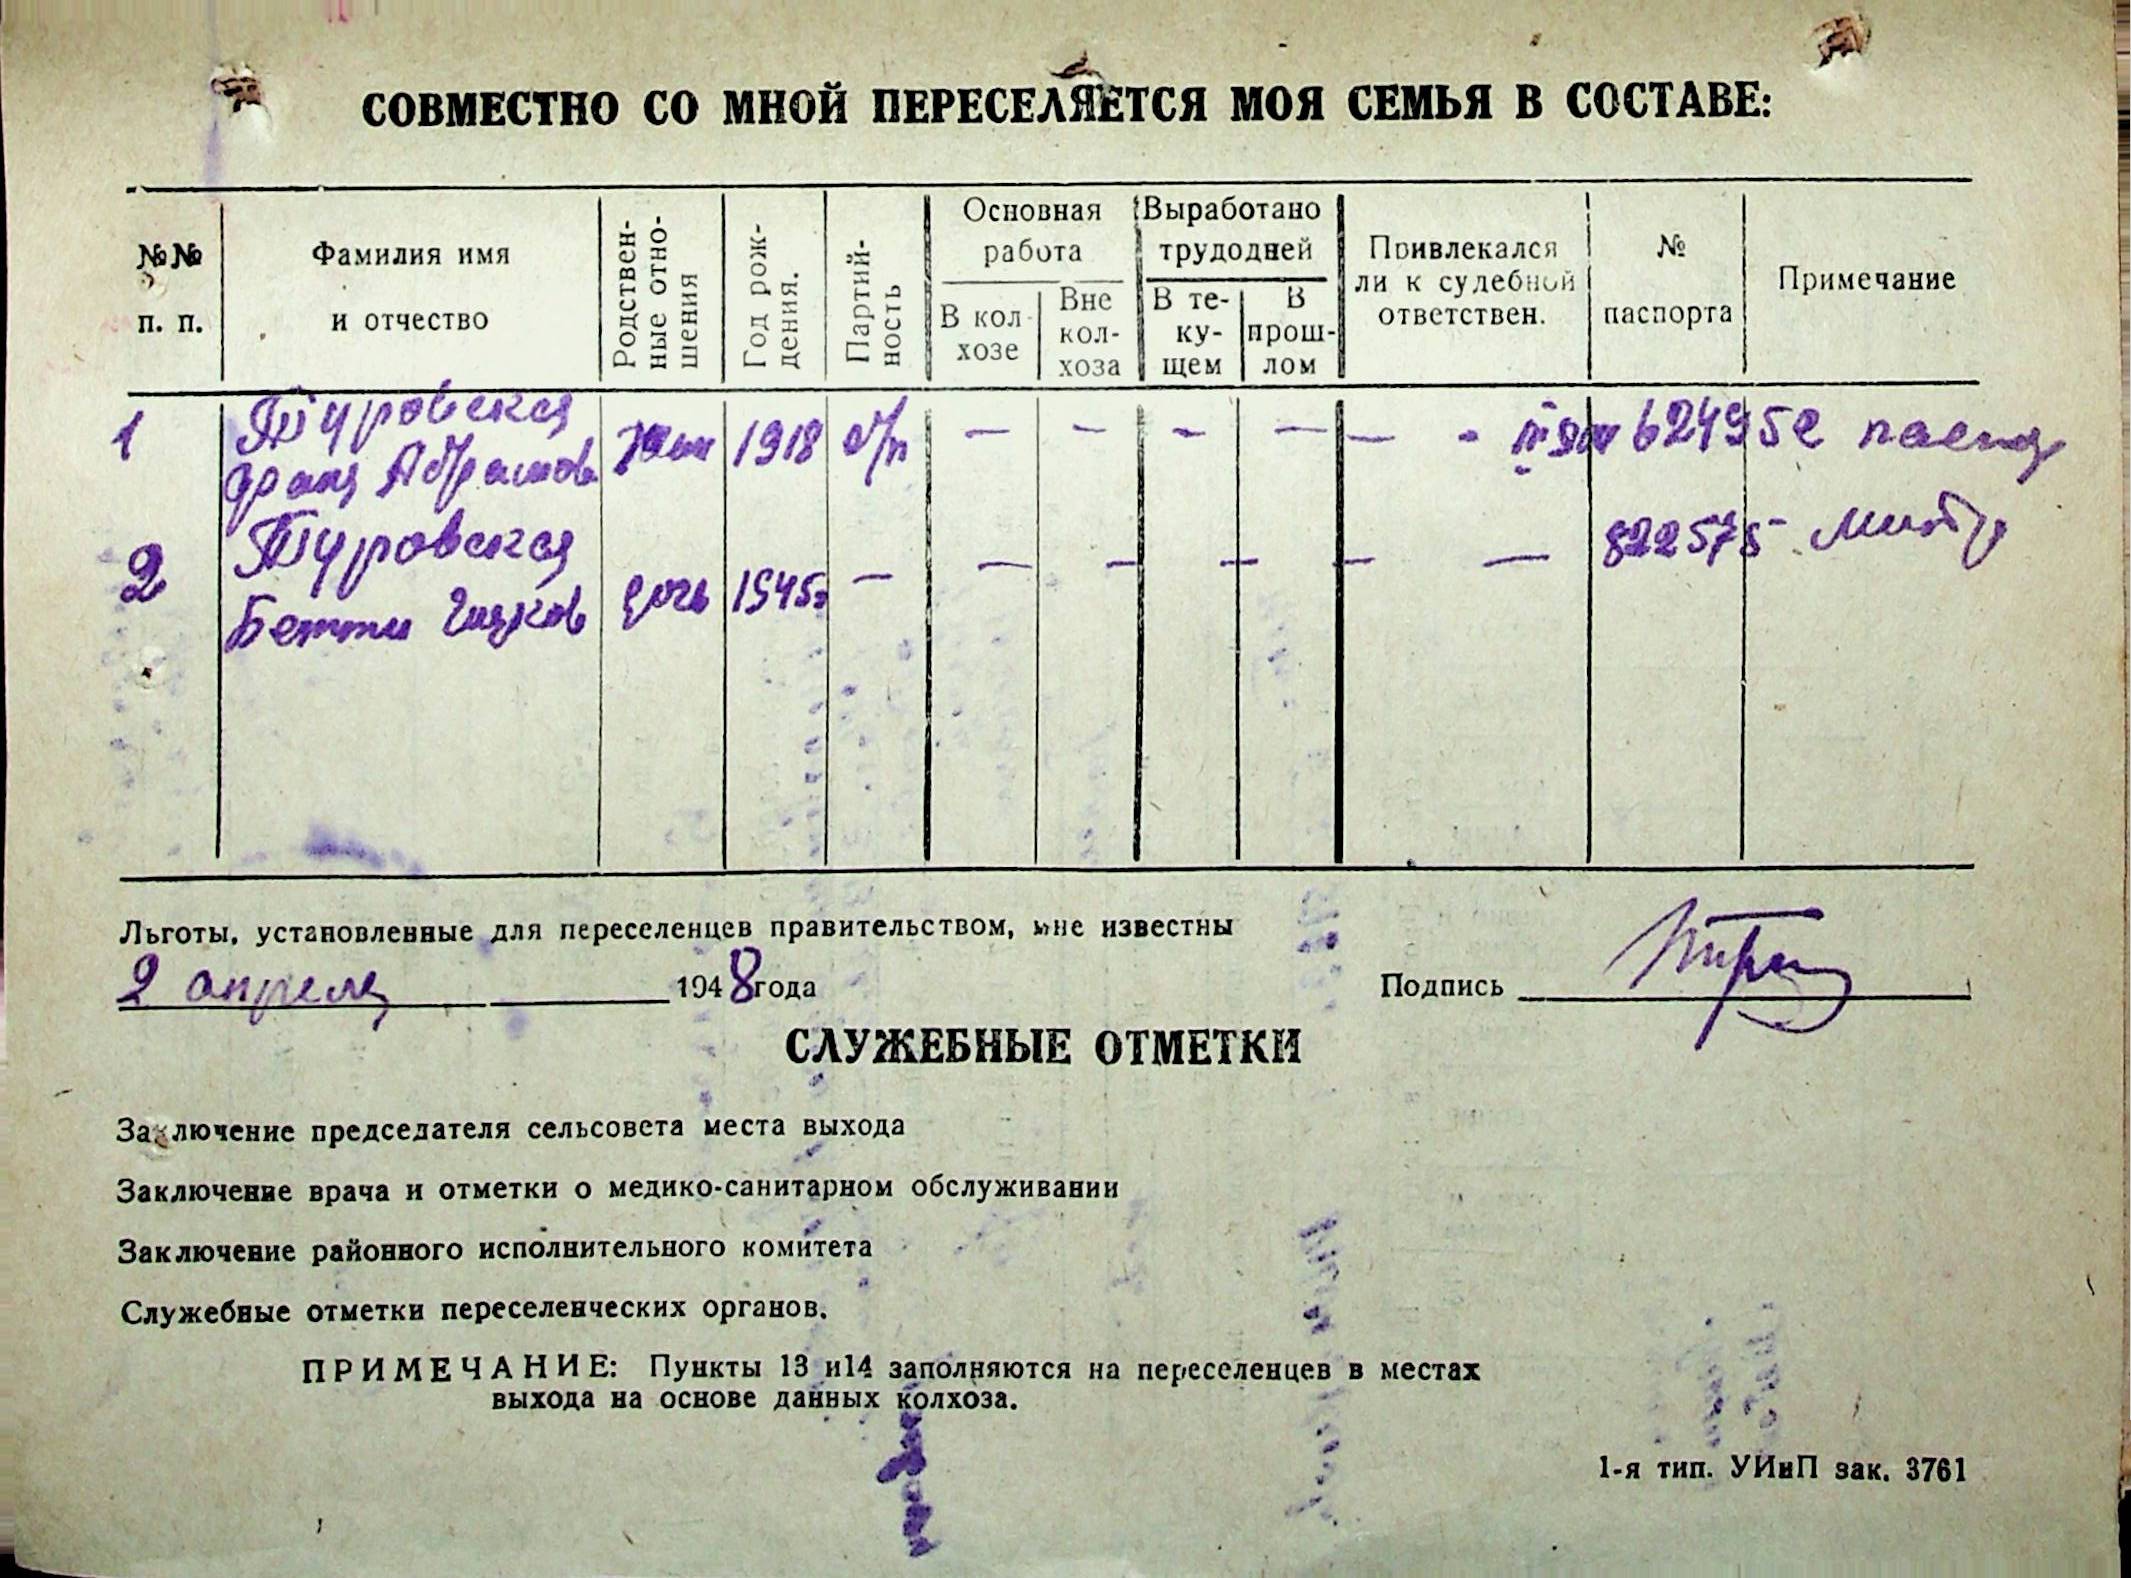 СОВМЕСТНО СО МНОЙ ПЕРЕСЕЛЯЕТСЯ МОЯ СЕМЬЯ В СОСТАВЕ:
№№ п. п.
Фамилия имя и отчество
Родствен-ные отно-шения
Год рож-дения.
Партий-ность
Основная работа
В кол-хозе
Вне кол-хоза
Выработано трудодней
В те-ку-щем
В прош-лом
Привлекался ли к судебной ответствен.
№ паспорта
Примечание
1 Туровская
Абрамов жен 1918 б/п — — — — —
2 Туровская 822575
Бетти дочь 1945г — — — — — —
Льготы, установленные для переселенцев правительством, мне известны
2 апреля 1948 года
Подпись
СЛУЖЕБНЫЕ ОТМЕТКИ
Заключение председателя сельсовета места выхода
Заключение врача и отметки о медико-санитарном обслуживании
Заключение районного исполнительного комитета
Служебные отметки переселенческих органов.
ПРИМЕЧАНИЕ: Пункты 13 и14 заполняются на переселенцев в местах
выхода на основе данных колхоза.
1-я тип. УИиП зак. 3761